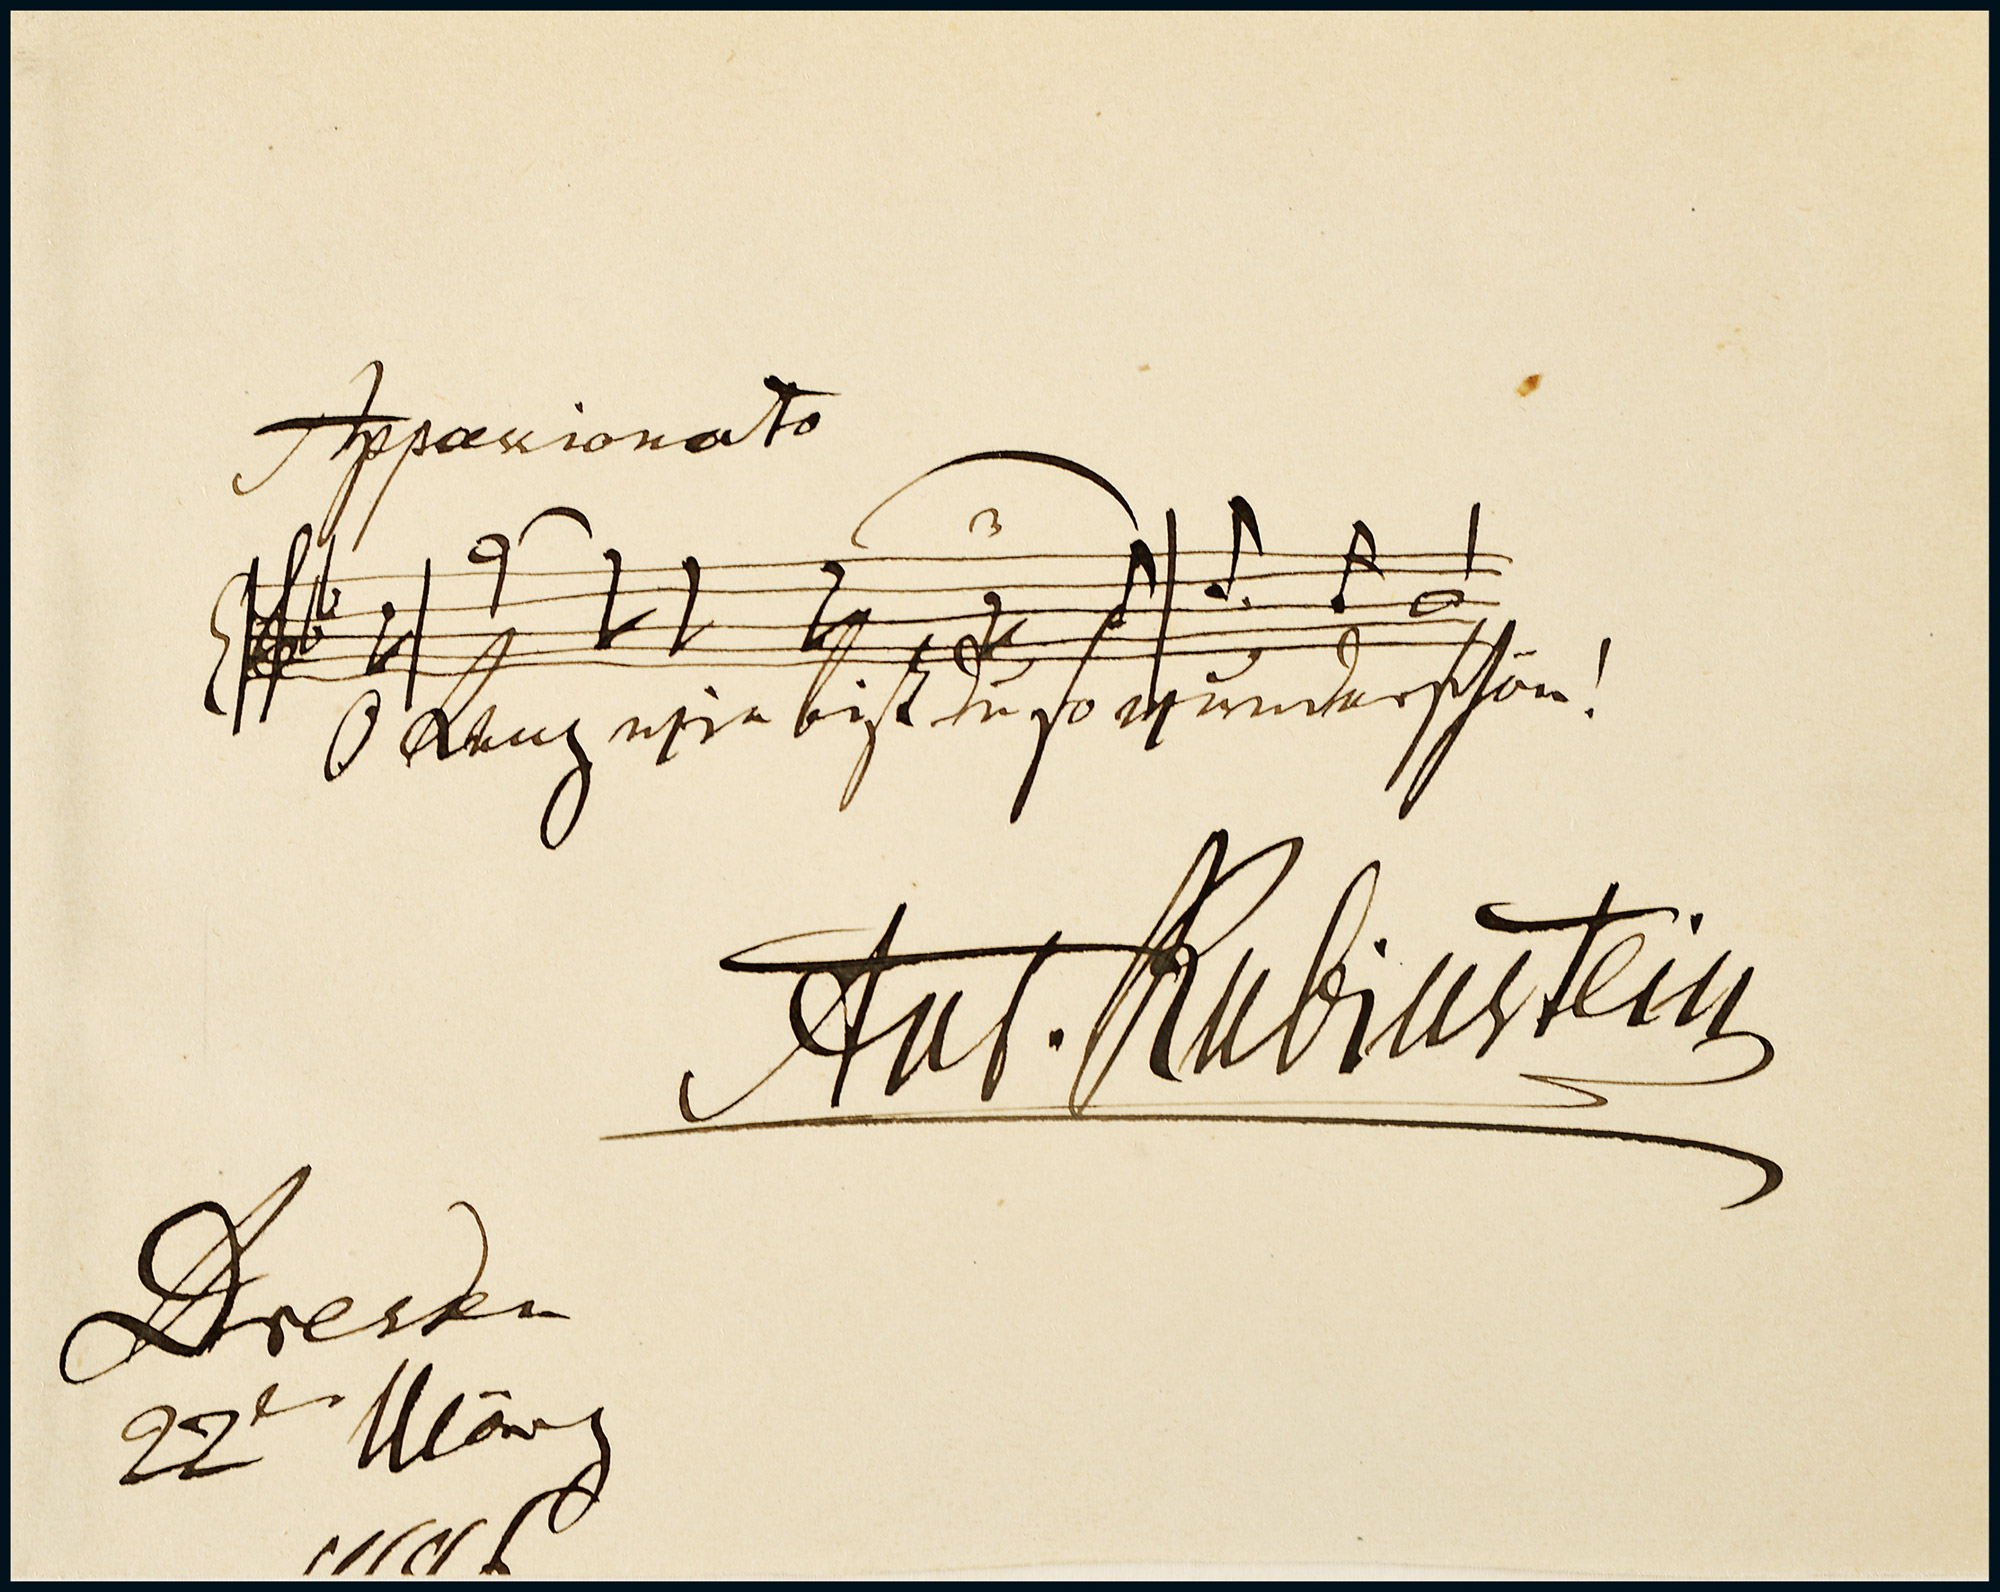 Appassionato
3
O Lenz wie bist du so wunderschön!
Ant. Rubinstein
Dresden
22ten März